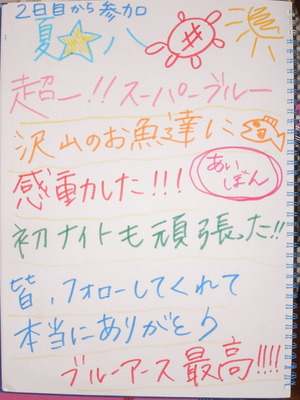 2日目から参加
夏☆八
超ー!!スーパーブルー
沢山のお魚達に
感動した!!!
あいしぼん
初ナイトも頑張った!!
皆、フォローしてくれて
本当にありがとう
ブルーアース最高!!!!